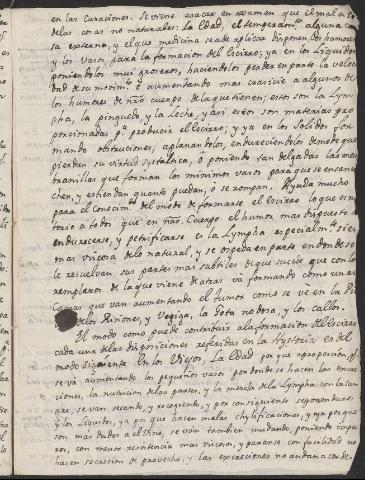 en las curaciones. Se viene a sacar en resumen que el mal en so
delas cosas no naturales: La Edad, el temperam.to alguna cau
sa externa, y el que medicina se ade aplicar disponen los humores
y los Vasos para la formacion del Escirro; ya en los Liquidos
poniendolos mui groseros, haciendolos perder en parte la veloci
dad de su movim.to ò aumentando mas crasicie a algunos de
los humores de nr̃o cuerpo dela que tienen; estos son la Lym
pha, la pinguedo, y la Leche, y asi estos son materias pro
porcionadas p.a producir el Escirro; y ya en los Solidos for
mando obstruciones, aplanandolos, endureciendolos de modo que
pierdan su virtud systaltica, ò poniendo tan delgadas las mem
branillas que forman los minimos vasos para que se ensan
chen, y estiendan quanto puedan, ò se rompan. Ayuda mucho
para el Conocim.to del modo de formarse el Escirro lo que es no
torio a todos que en nr̃o Cuerpo el humor mas dispuesto a
endurecerse, y petrificarse es la Lympha especialm.te si es
mas viscosa delo natural, y se ospeda en parte en donde se
le resuelvan sus partes mas subtiles de que sucede que con los
remplazos de la que viene de atras va formando como unas
Camas que van aumentando el tumor como se ve en la Pie
delos Riñones, y Vegiga, la Gota nodosa, y los callos.
El modo como puede contribuir ala formacion del Escirro
cada una delas disposiciones referidas en la Hystoria es del
modo siguiente. En los Viejos, La Edad por que aproposicion, q.e
se và aumentando los pequeños vasos por donde se hacen las secre
ciones, la nutricion de las partes, y la mezcla dela Lympha con la san
gre, se van secando, y recogiendo, y por consiguiente se ponen duros
y los Liquidos, ya por que hacen malas chylificaciones, y ya por que
son mas dados al Vino, se van tambien mudando, poniendo impu
ros, con menor resistencia mas viscosos, y pararse con facilidad no
hacen secrecion de provecho, y las excreciones no andan a conde